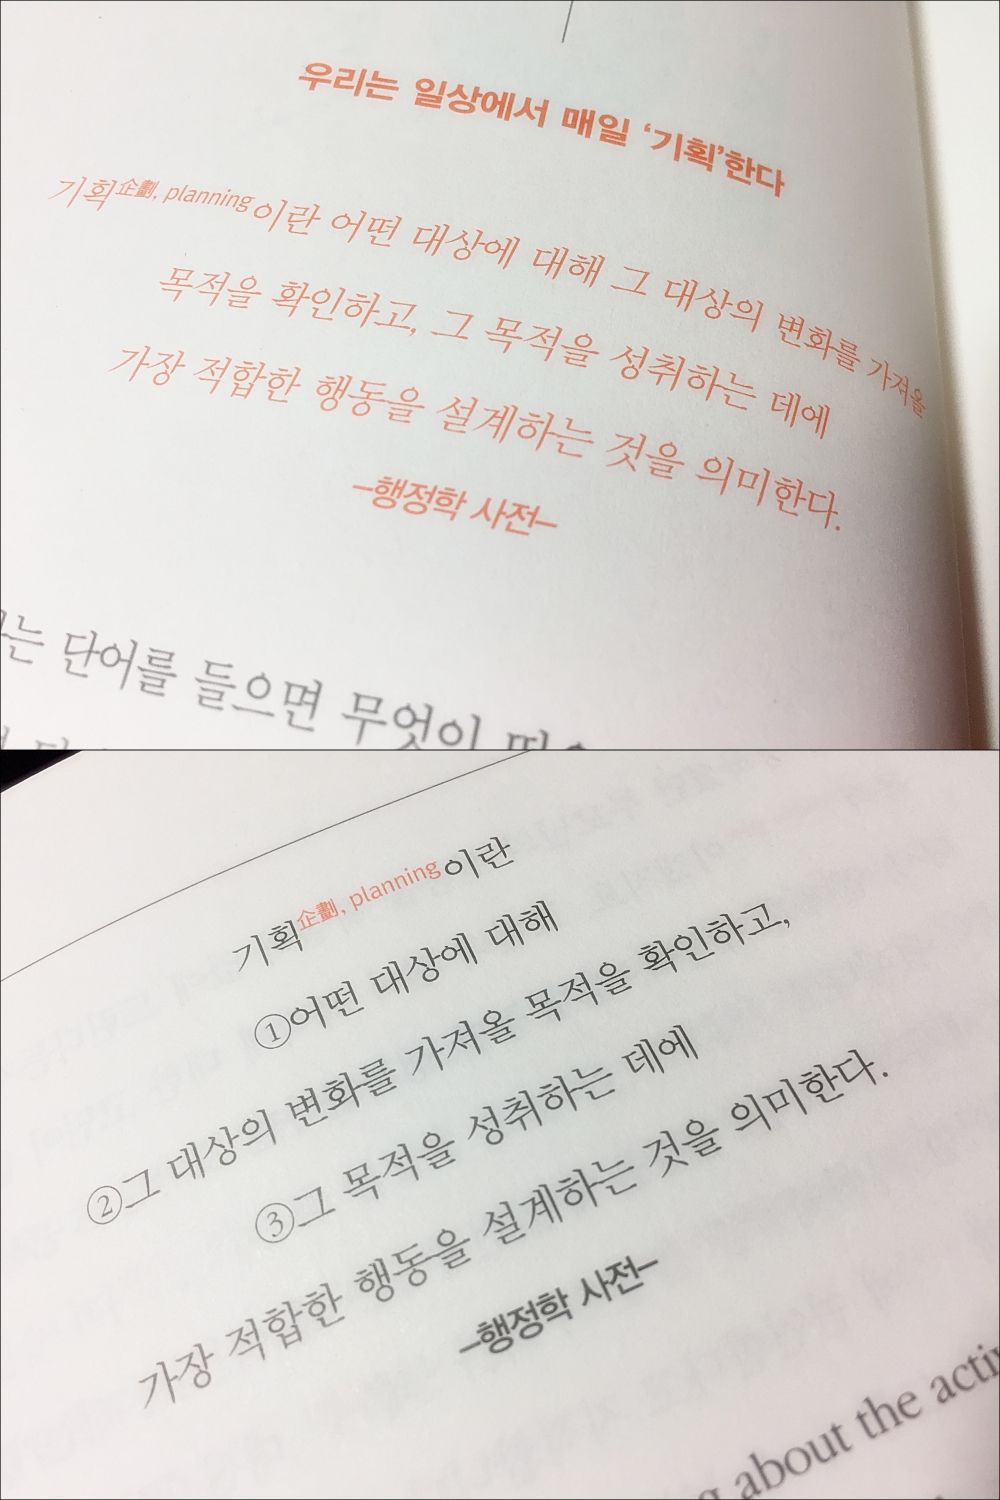 우리는 일상에서 매일 ‘기획’한다
기획企劃, planning이란 어떤 대상에 대해 그 대상의 변화를 가져올
목적을 확인하고, 그 목적을 성취하는 데에
가장 적합한 행동을 설계하는 것을 의미한다.
–행정학 사전–
는 단어를 들으면 무엇이
기획企劃, planning이란
①어떤 대상에 대해
②그 대상의 변화를 가져올 목적을 확인하고,
③그 목적을 성취하는 데에
가장 적합한 행동을 설계하는 것을 의미한다.
–행정학 사전–
about the